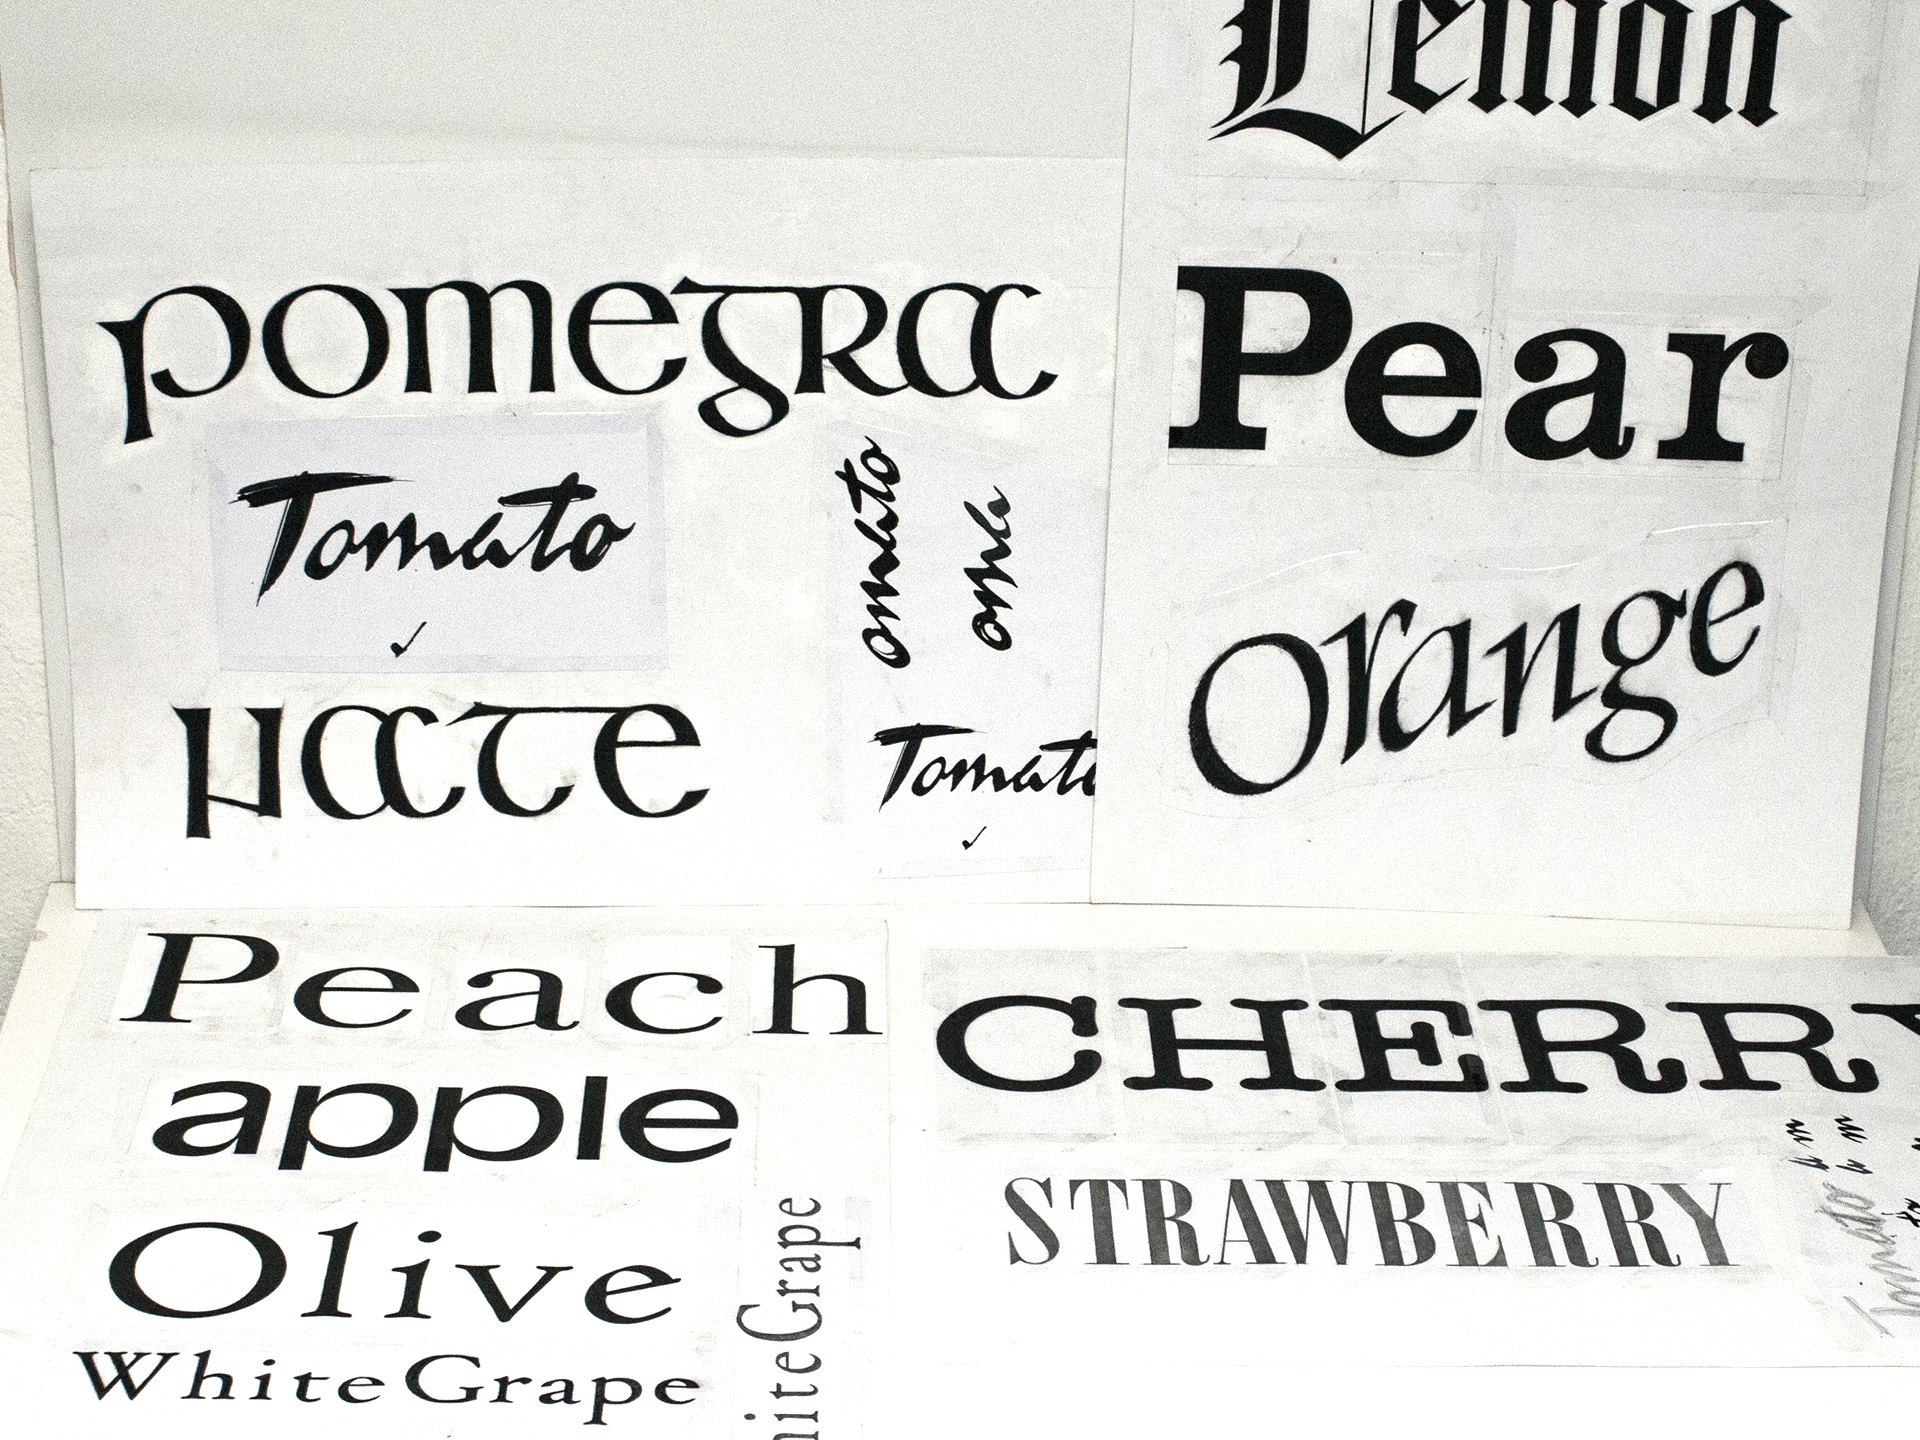 Lemon
pomegra
Tomato
omato
oma
nate
Tomato
Pear
Orange
Peach
apple
Olive
White Grape
hite Grape
CHERRY
STRAWBERRY
Tomato